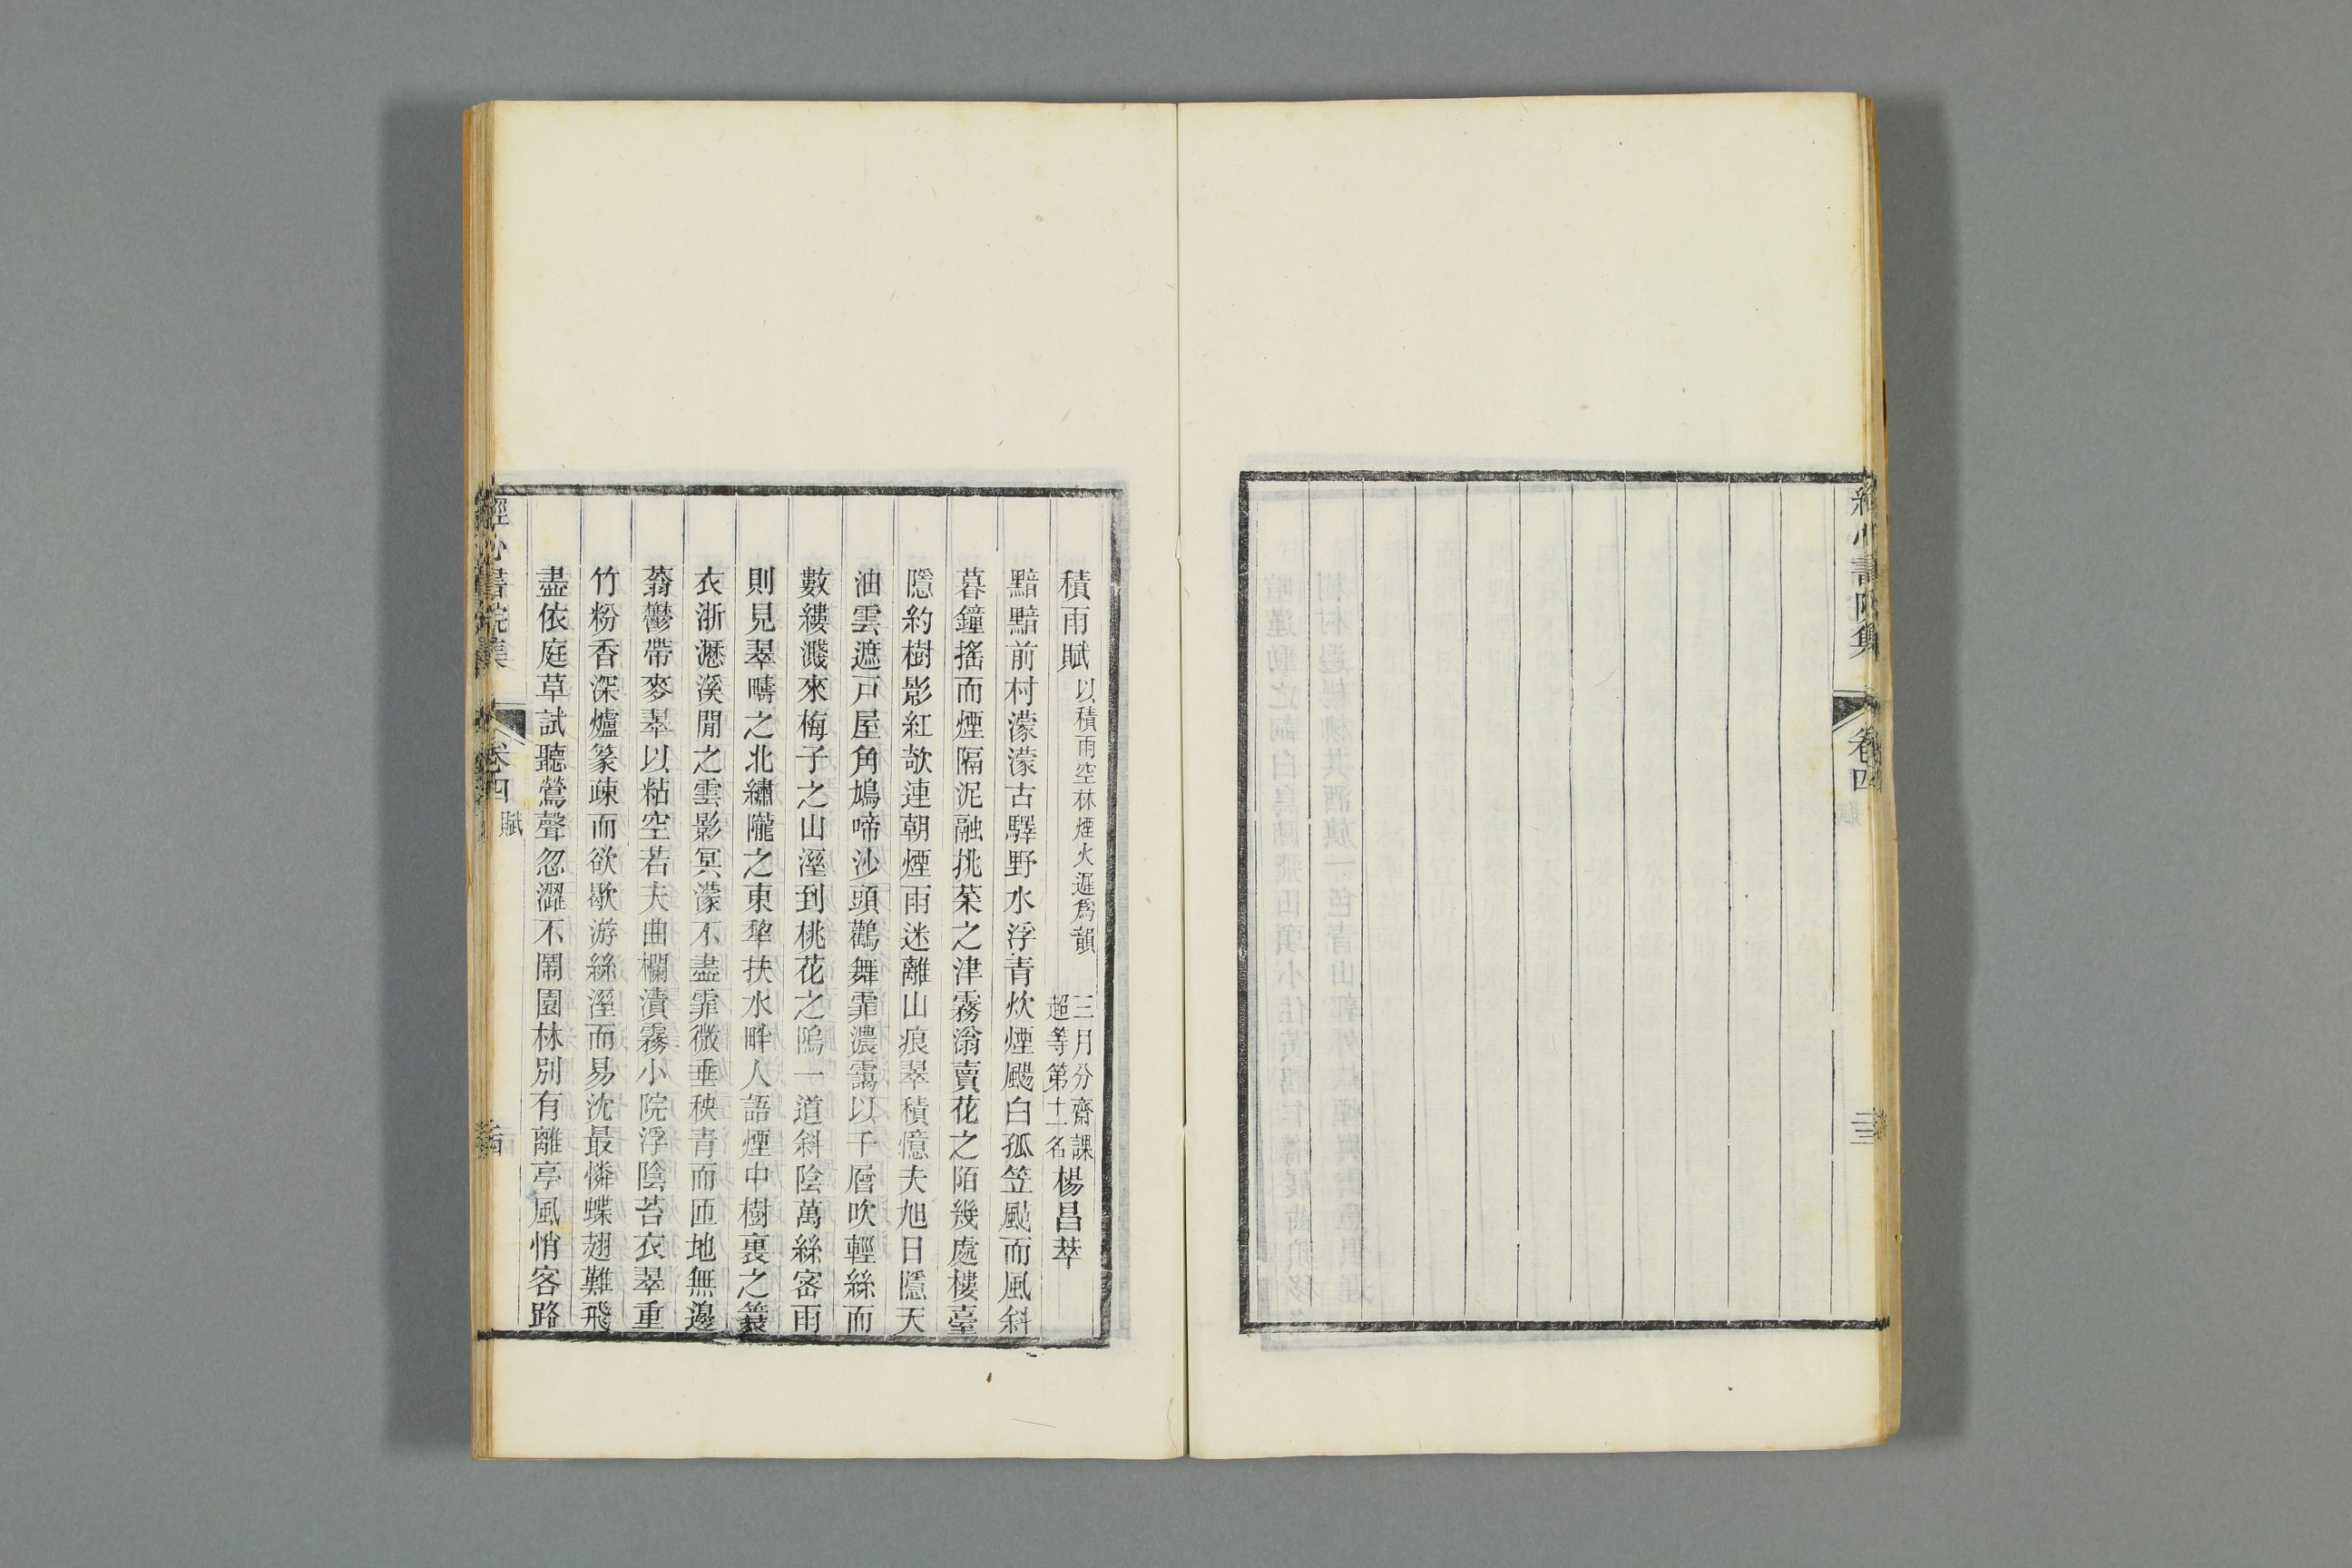 經心書院集
卷四
賦
三三
積雨賦 以積雨空林煙火遲爲韻 三月分齋課 超等第十一名 楊昌萃
黯黯前村濛濛古驛野水浮青炊煙颺白孤笠颭而風斜
暮鐘搖而煙隔泥融挑菜之津霧滃賣花之陌幾處樓臺
隱約樹影紅欹連朝煙雨迷離山痕翠積憶夫旭日隱天
油雲遮戸屋角鳩啼沙頭鸛舞霏濃靄以千層吹輕絲而
數縷濺來梅子之山溼到桃花之隖一道斜陰萬絲密雨
則見翠疇之北繡隴之東犂扶水畔人語煙中樹裏之簑
衣浙瀝溪閒之雲影冥濛不盡霏微垂秧青而匝地無邊
蓊鬱帶麥翠以粘空若夫曲欄漬霧小院浮陰苔衣翠重
竹粉香深爐篆疎而欲歇游絲溼而易沈最憐蝶翅難飛
盡依庭草試聽鶯聲忽澀不鬧園林別有離亭風悄客路
經心書院集
卷四
賦